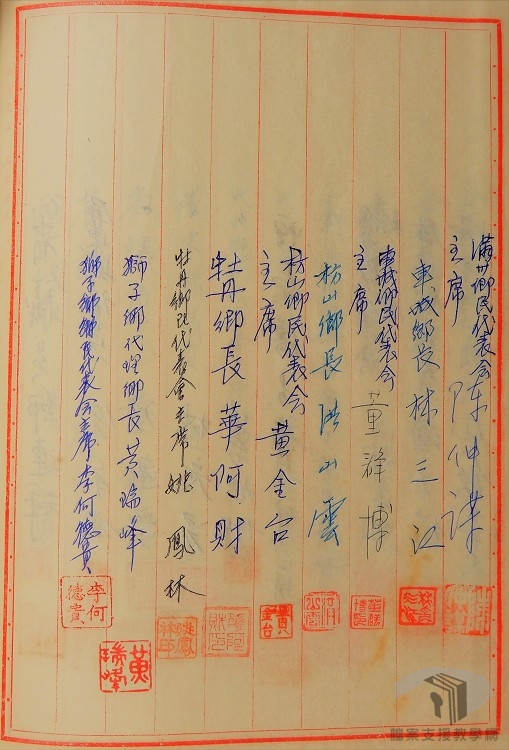 滿州鄉民代表會
主席 陳仲謀
車城鄉長 林三江
車城鄉民代表會
主席 董鋒博
枋山鄉長 洪山雲
枋山鄉民代表會
主席 黃金台
牡丹鄉長 華阿財
牡丹鄉民代表會主席 姚鳳林
獅子鄉代理鄉長 黃瑞峰
獅子鄉鄉民代表會主席 李何德貴
李何德貴
黃瑞峰
黃金台
檔案支援教學網